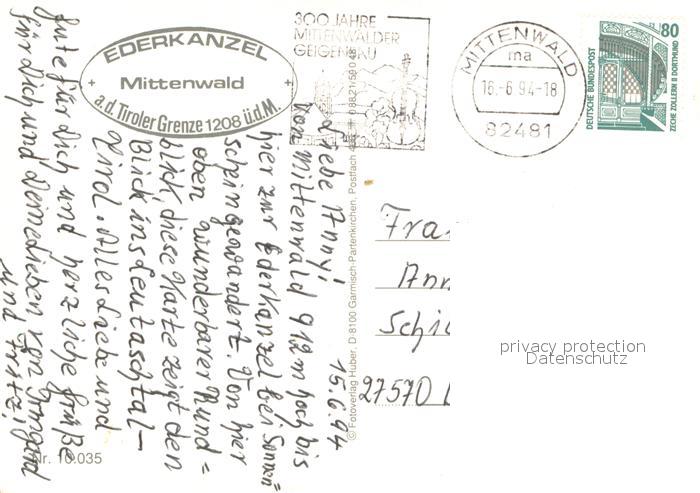 300 JAHRE
MITTENWALDER
GEIGENBAU
MITTENWALD
ma
16.-6.94-18
82481
80
DEUTSCHE BUNDESPOST
ZECHE ZOLLERN II DORTMUND
EDERKANZEL
Mittenwald
a.d. Tiroler Grenze 1208 ü.d.M.
15.6.94
Liebe Anny!
Von Mittenwald 912 m hoch bis
hier zur Ederkanzel bei Sonnen=
schein gewandert. Von hier
oben wunderbarer Rund=
blick, diese Karte zeigt den
Blick ins Leutaschtal-
Wird. Alles Liebe und
Gute für Dich und herzliche Grüße
für Dich und Deine Lieben von Irmgard
und Fritz!
© Fotoverlag Huber, D 8100 Garmisch-Partenkirchen, Postfach
Nr. 10.035
Fra
Ann
Schi
27570
privacy protection
Datenschutz